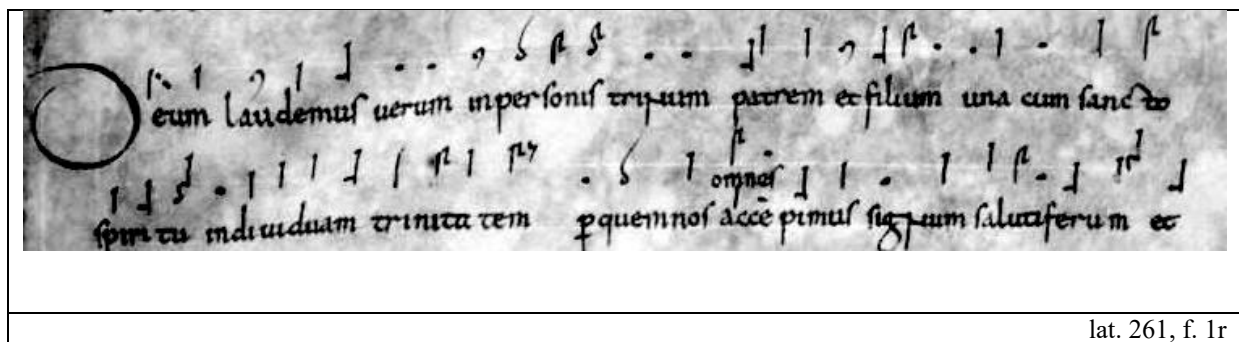 Deum laudemus uerum in personis trinum patrem et filium una cum sancto
omnes
spiritu indiuiduam trinitatem p quem nos accepimus signum salutiferum et
lat. 261, f. 1r